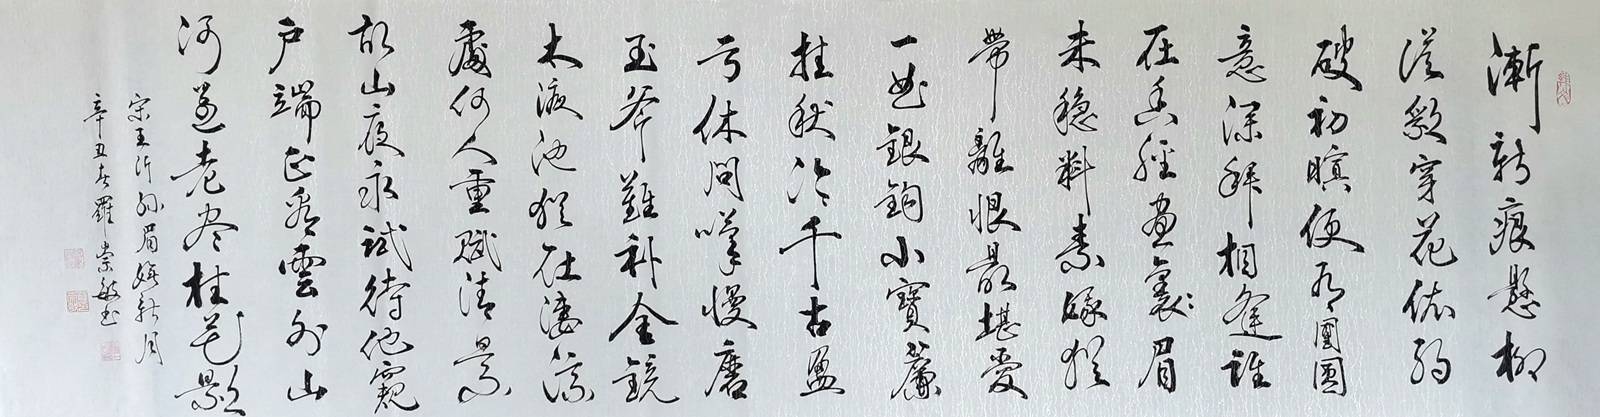 漸新痕懸柳
淡彩穿花依約
破初暝便有團圓
意深拜相逢誰
在香徑畫眉
未穩料素娥猶
帶離恨最堪愛
一曲銀鉤小寶簾
挂秋冷千古盈
亏休問嘆慢磨
玉斧難補金鏡
太液池猶在凄涼
處何人重賦清景
故山夜永試待他窺
户端正看雲外山
河還老盡桂花影
宋王沂孫眉嫵新月
辛丑春羅崇敏书